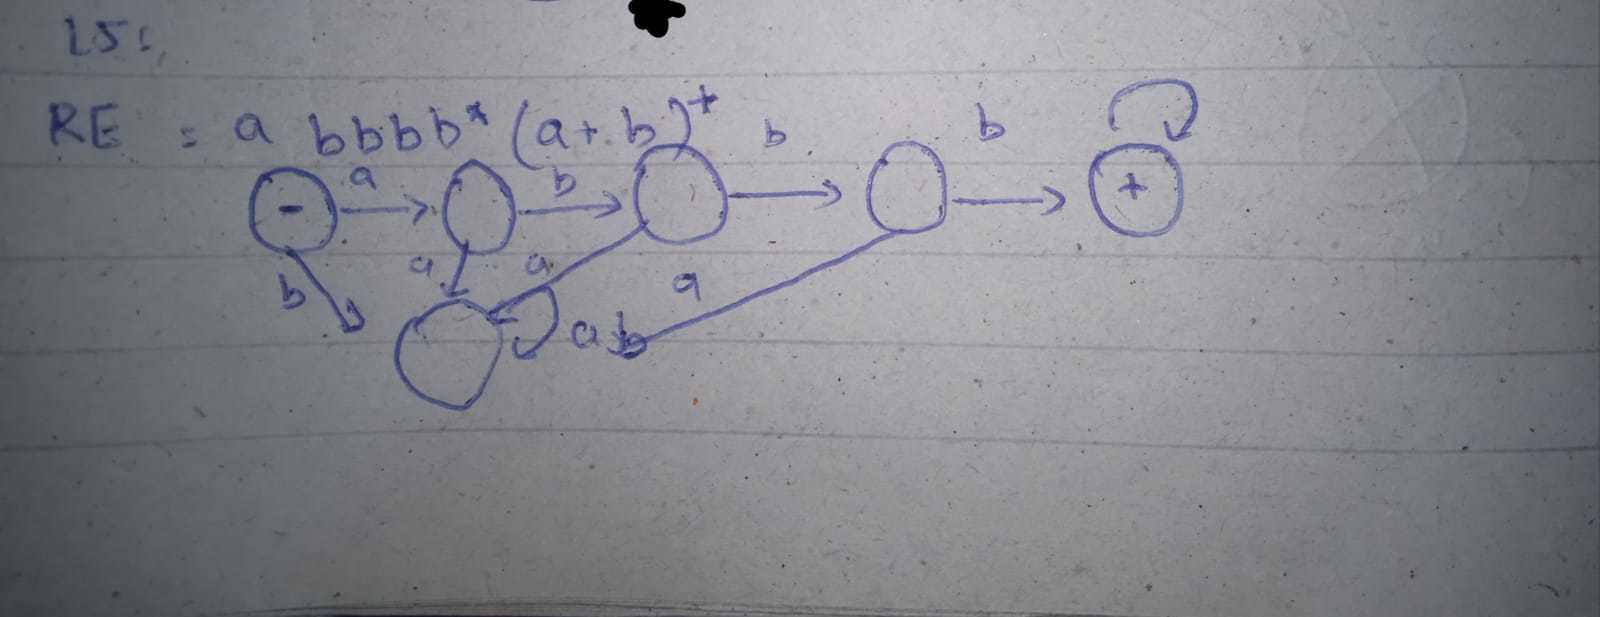 15:
RE = a bbbb* (a+b)+
a b b b
- +
b a a a
a b